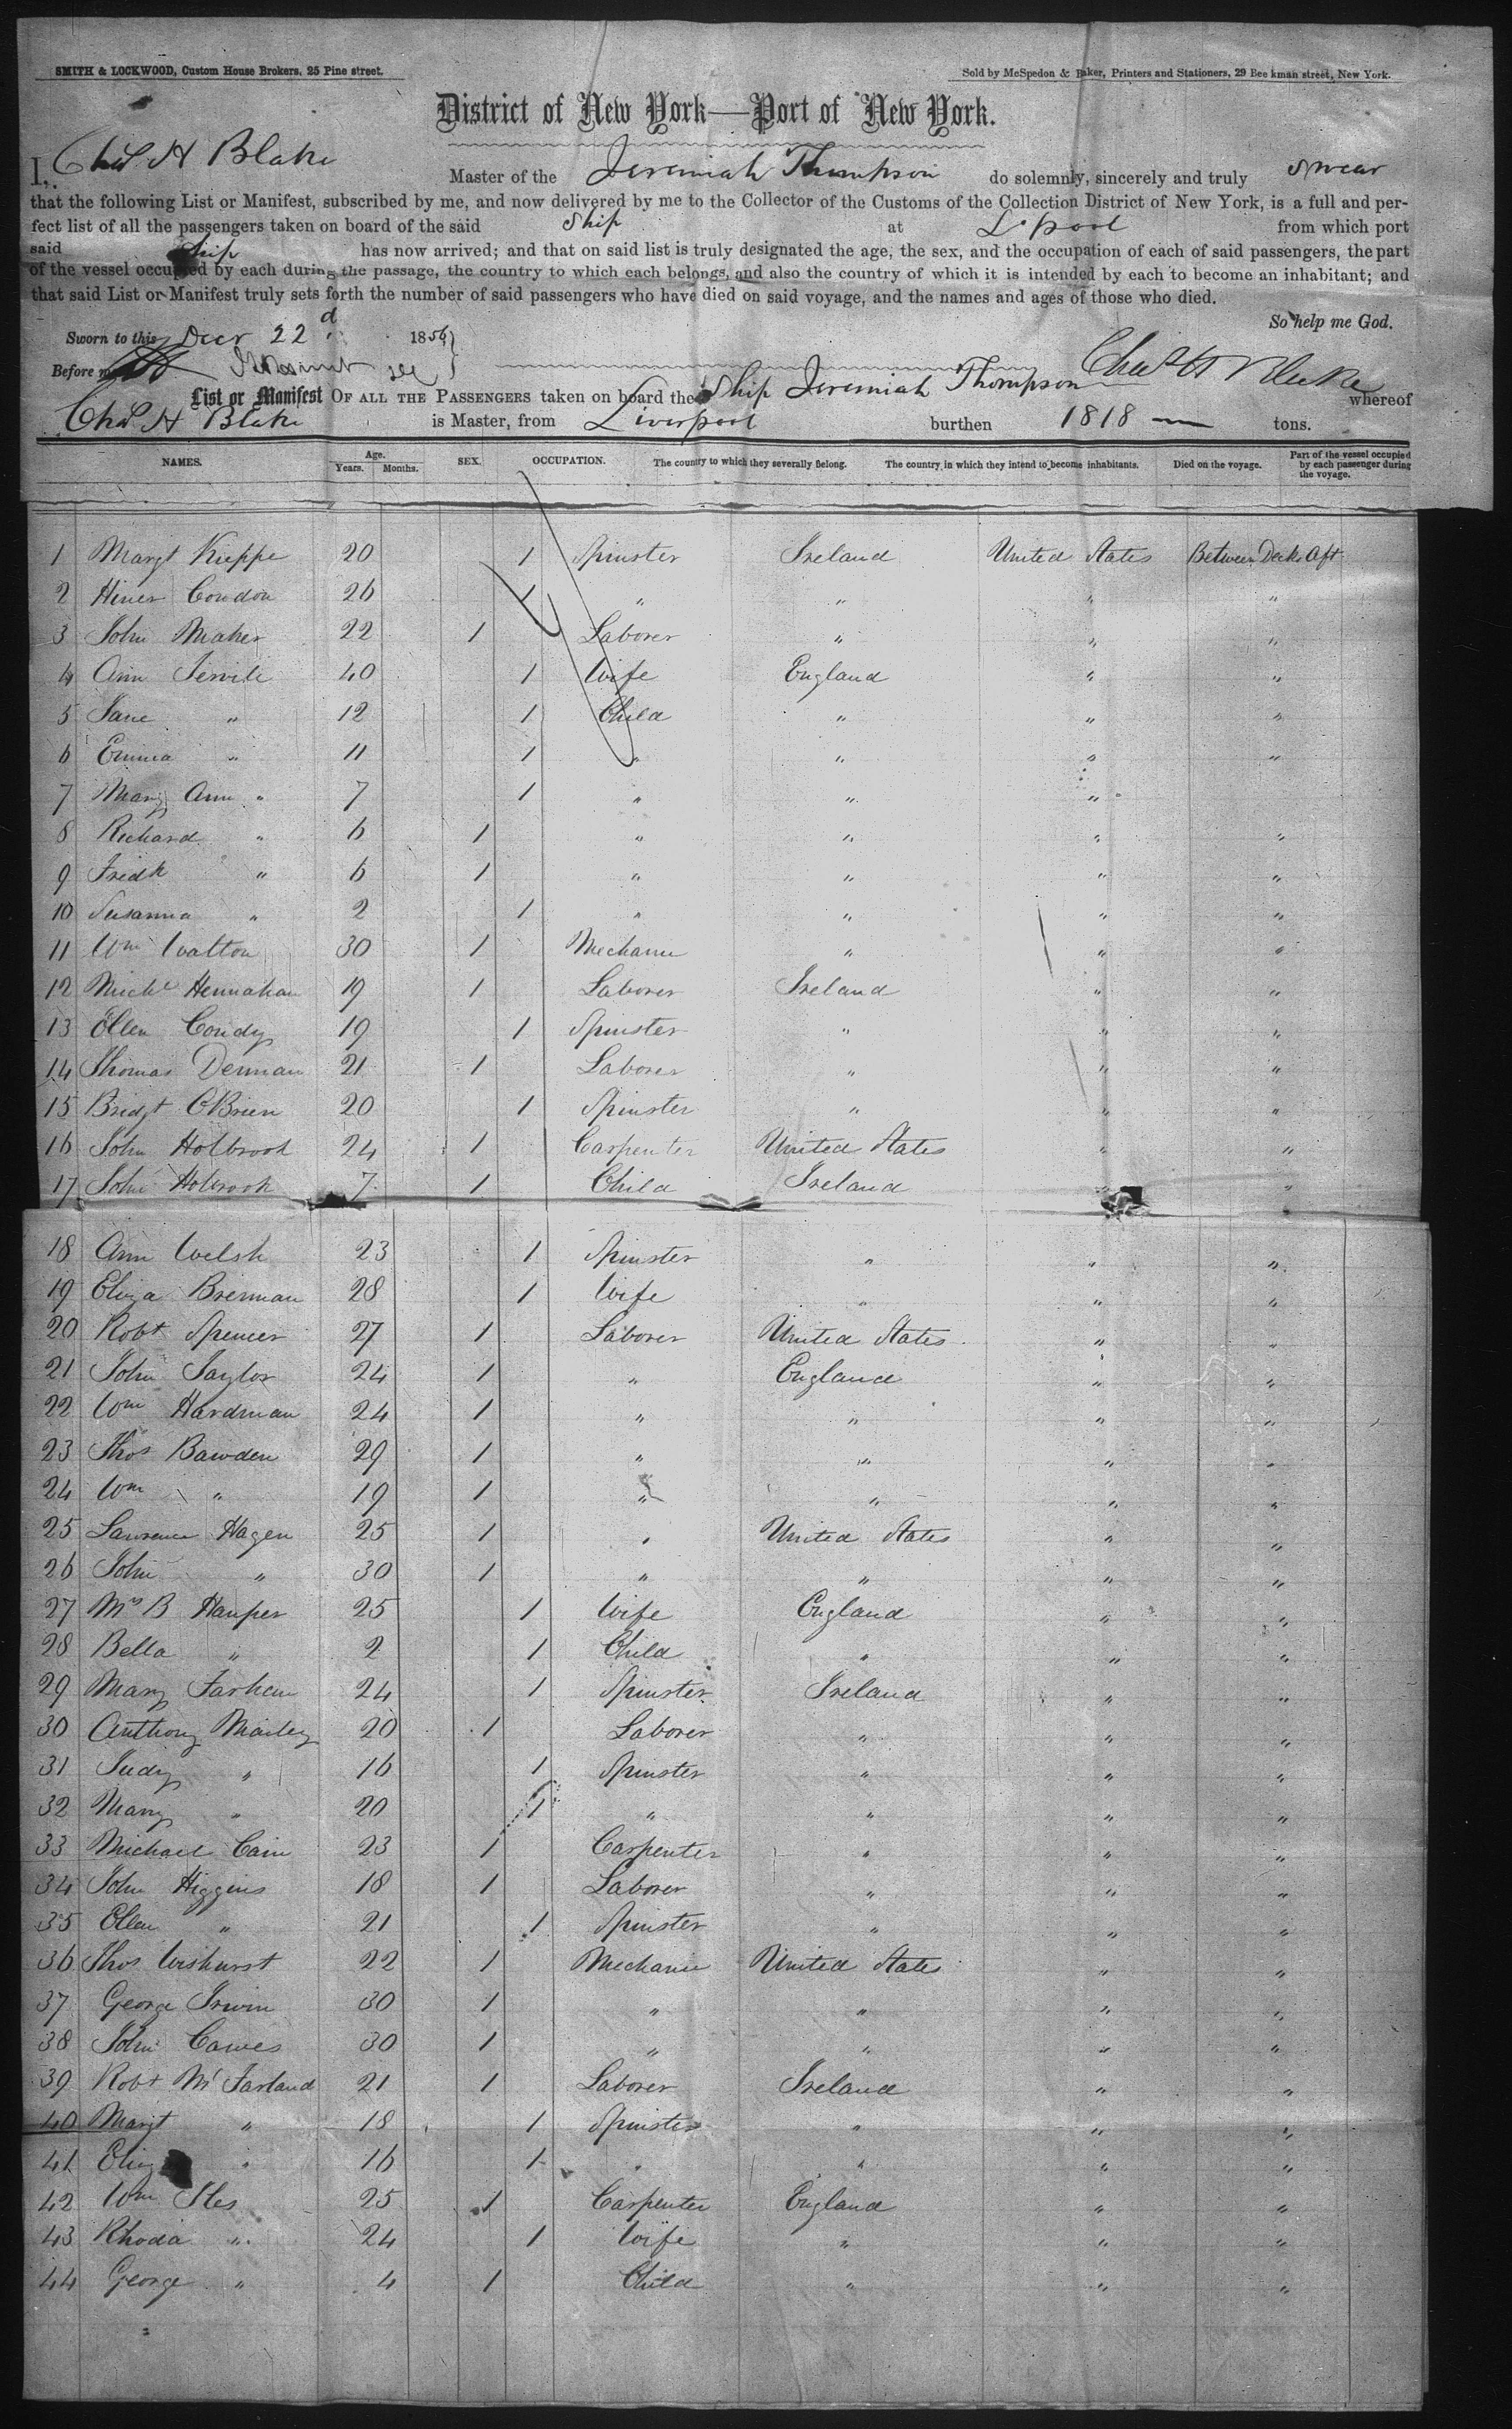 SMITH & LOCKWOOD, Custom House Brokers, 25 Pine street.
Sold by McSpedon & Baker, Printers and Stationers, 29 Beekman street, New York.
District of New York—Port of New York.
I, Chas H Blake Master of the Jeremiah Thompson do solemnly, sincerely and truly swear
that the following List or Manifest, subscribed by me, and now delivered by me to the Collector of the Customs of the Collection District of New York, is a full and per-
fect list of all the passengers taken on board of the said Ship at L'pool from which port
said Ship has now arrived; and that on said list is truly designated the age, the sex, and the occupation of each of said passengers, the part
of the vessel occupied by each during the passage, the country to which each belongs, and also the country of which it is intended by each to become an inhabitant; and
that said List or Manifest truly sets forth the number of said passengers who have died on said voyage, and the names and ages of those who died.
So help me God.
Sworn to this Decr 22d 1856
Before me
Chas H Blake
List or Manifest OF ALL THE PASSENGERS taken on board the Ship Jeremiah Thompson whereof
Chas H Blake is Master, from Liverpool burthen 1818 — tons.
NAMES. Age. Years. Months. SEX. OCCUPATION. The country to which they severally belong. The country in which they intend to become inhabitants. Died on the voyage. Part of the vessel occupied by each passenger during the voyage.
1 Margt Kieppe 20 1 Spinster Ireland United States Between Decks Aft
2 Hiner Cowdon 26 1 " " " "
3 John Maher 22 1 Laborer " " "
4 Ann 40 1 Wife England " "
5 Jane " 12 1 Child " " "
6 Emma " 11 1 " " " "
7 Mary Ann " 7 1 " " "
8 Richard " 6 1 " " " "
9 Fredk " 6 1 " " " "
10 Susanna " 2 1 " " " "
11 Wm Walton 30 1 Mechanic " " "
12 Michl Hennahan 19 1 Laborer Ireland " "
13 Ellen Condy 19 1 Spinster " " "
14 Thomas Dennan 21 1 Laborer " " "
15 Bridgt O'Brien 20 1 Spinster " " "
16 John Holbrook 24 1 Carpenter United States " "
17 John Holbrook 7 1 Child Ireland " "
18 Ann Welsh 23 1 Spinster " " "
19 Eliza Brennan 28 1 Wife " " "
20 Robt Spencer 27 1 Laborer United States " "
21 John Taylor 24 1 " England " "
22 Wm Hardman 24 1 " " " "
23 Thos Bawden 29 1 " " " "
24 Wm " 19 1 " " " "
25 Lawrence Hagen 25 1 " United States " "
26 John " 30 1 " " " "
27 Mrs B Harper 25 1 Wife England " "
28 Bella " 2 1 Child " " "
29 Mary 24 1 Spinster Ireland " "
30 Anthony Mailey 20 1 Laborer " " "
31 Judy " 16 1 Spinster " " "
32 Mary " 20 1 " " " "
33 Michael Cain 23 1 Carpenter " " "
34 John Higgins 18 1 Laborer " " "
35 Ellen " 21 1 Spinster " " "
36 Thos Wishurst 22 1 Mechanic United States " "
37 George Irwin 30 1 " " " "
38 John Cawes 30 1 " " " "
39 Robt McFarland 21 1 Laborer Ireland " "
40 Margt " 18 1 Spinster " " "
41 Eliza " 16 1 " " " "
42 Wm Iles 25 1 Carpenter England " "
43 Rhoda " 24 1 Wife " " "
44 George " 4 1 Child " " "